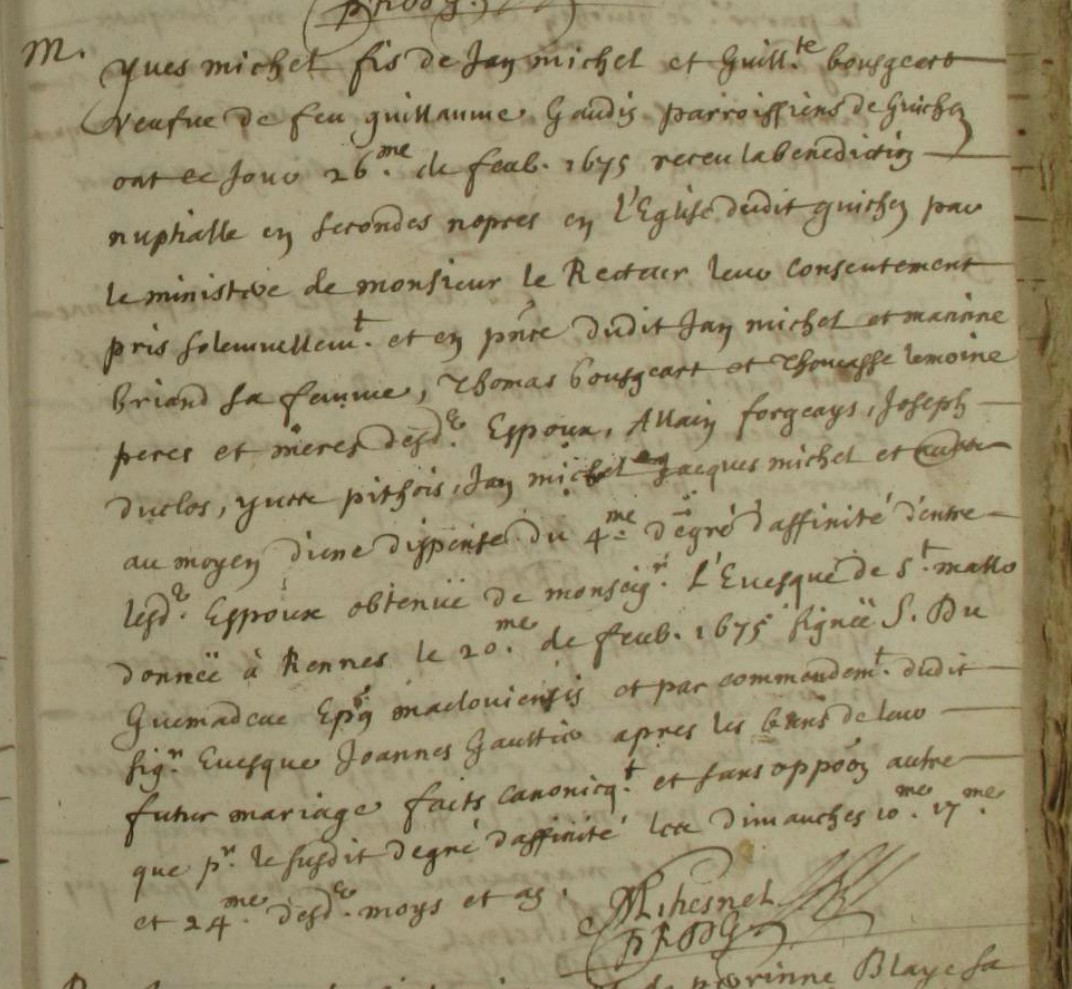 M. Yves michel fis de Jan michel et Guill.te bougeart
veufve de feu guillaume Gaudin parroissiens de Guichen
ont ce Jour 26.me de feub. 1675 receu la benediction
nuptialle en secondes nopces en l'Eglise dudit guichen par
le ministere de monsieur le Recteur leur consentement
pris solemnellem.t et en pnce dudit Jan michel et
briand sa femme, Thomas bougeart et Thomasse lemoine
peres et meres desd. Espoux, Allain forgeays, Joseph
duclos, yves pithois, Jan michel Jacques michel et autres
au moyen d'une dispense du 4.me degré d'affinité d'entre
lesd. Espoux obtenuë de monseig.r L'Evesque de S.t mallo
donnée à Rennes le 20.me de feub. 1675 signée S. Du
Guemadeuc Epus macloviensis et par commendem.t dudit
sig.r Evesque Joannes Gaultier apres les bans de leur
futur mariage faits canonicq.t et sans oppoon autre
que p.r le susdit degré d'affinité les dimanches 10.me 17.me
et 24.me desd. moys et an.
chesnel
de perrinne Blaye sa